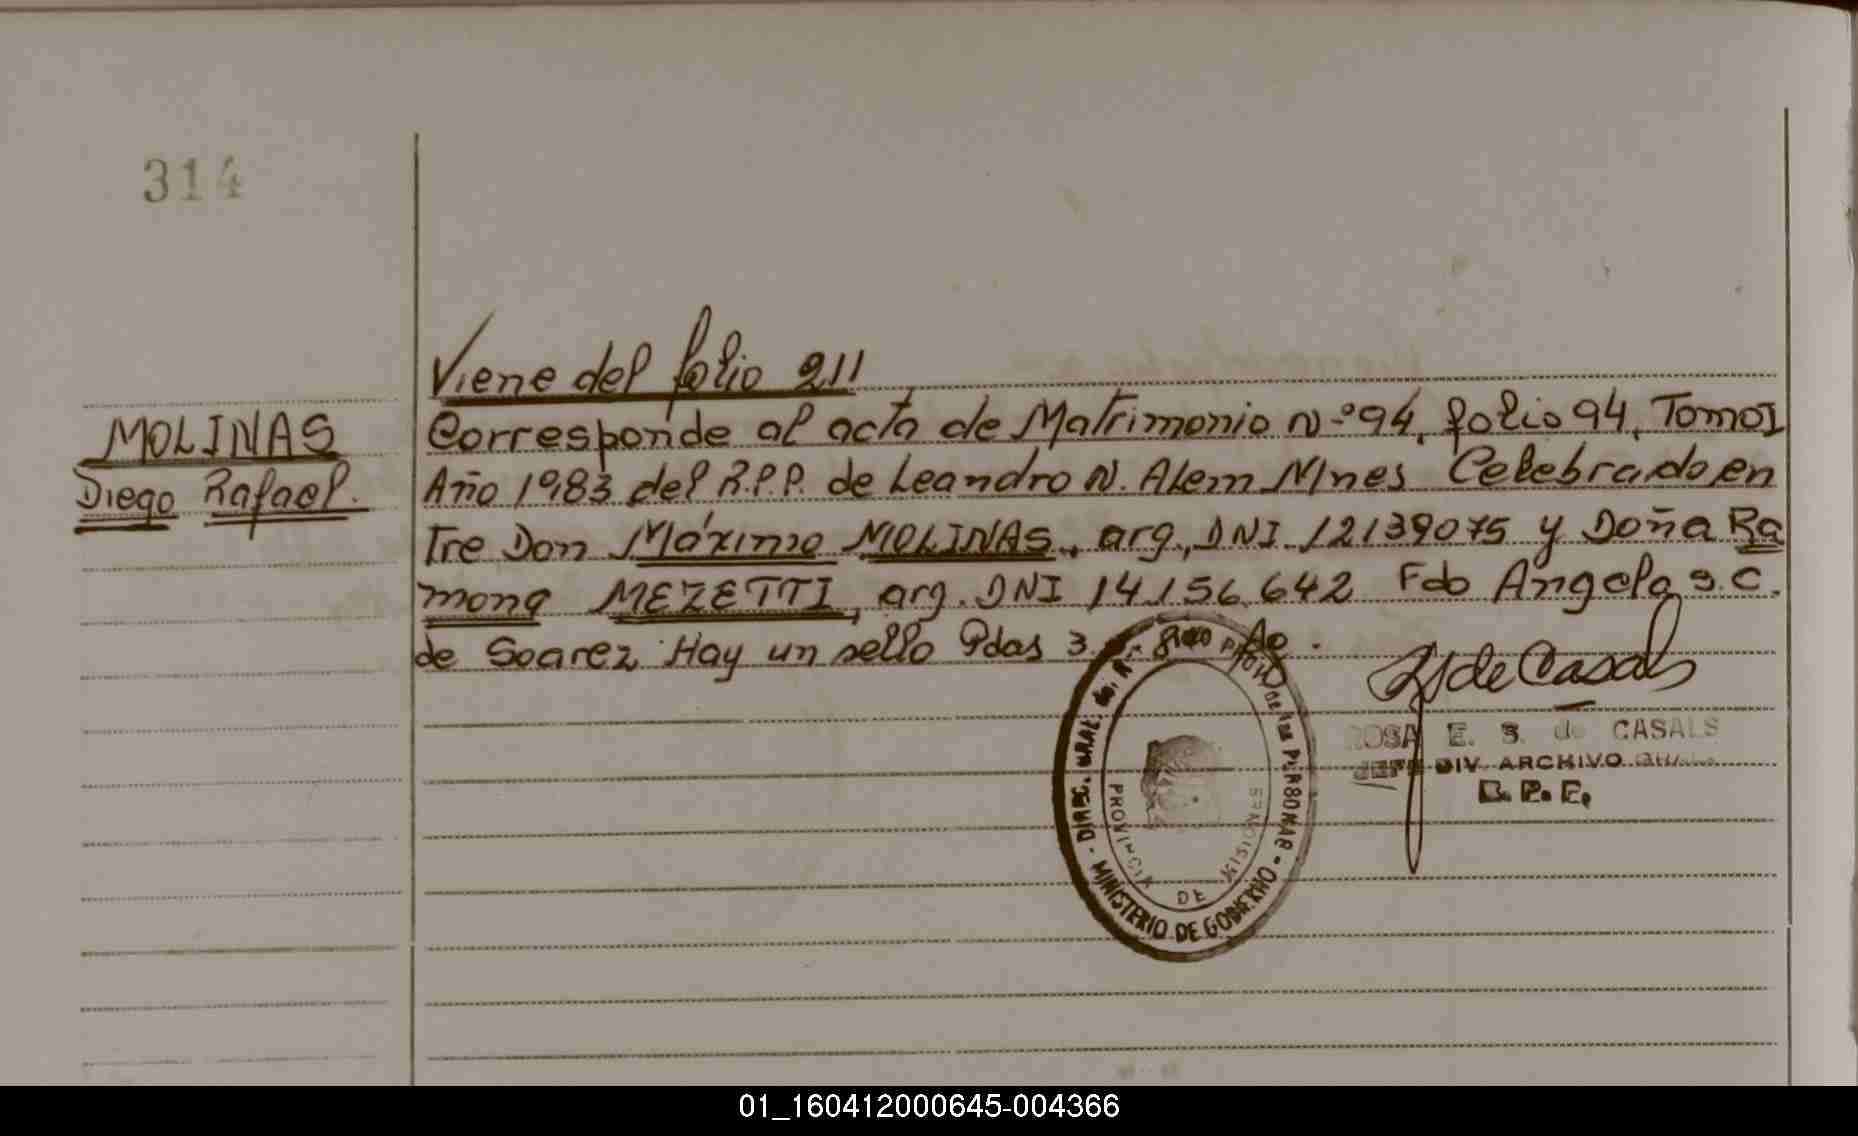 314
Viene del folio 211
MOLINAS
Diego Rafael.
Corresponde al acta de Matrimonio N-º94, folio 94, Tomo I
Año 1983 del R.P.P. de Leandro N. Alem Mnes Celebrado en
Tre Don Máximo MOLINAS, arg., DNI 12139075 y Doña Ra
mona MEZETTI, arg. DNI 14.156.642 Fdo Angela S.C.
de Soarez Hay un sello Pdas 3.
de Casals
ROSA E. S. de CASALS
JEFE DIV. ARCHIVO GRAL.
R. P. P.
DIREC. GRAL. de, PROV. de las PERSONAS - MINISTERIO DE GOBIERNO -
PROVINCIA DE MISIONES
01_160412000645-004366